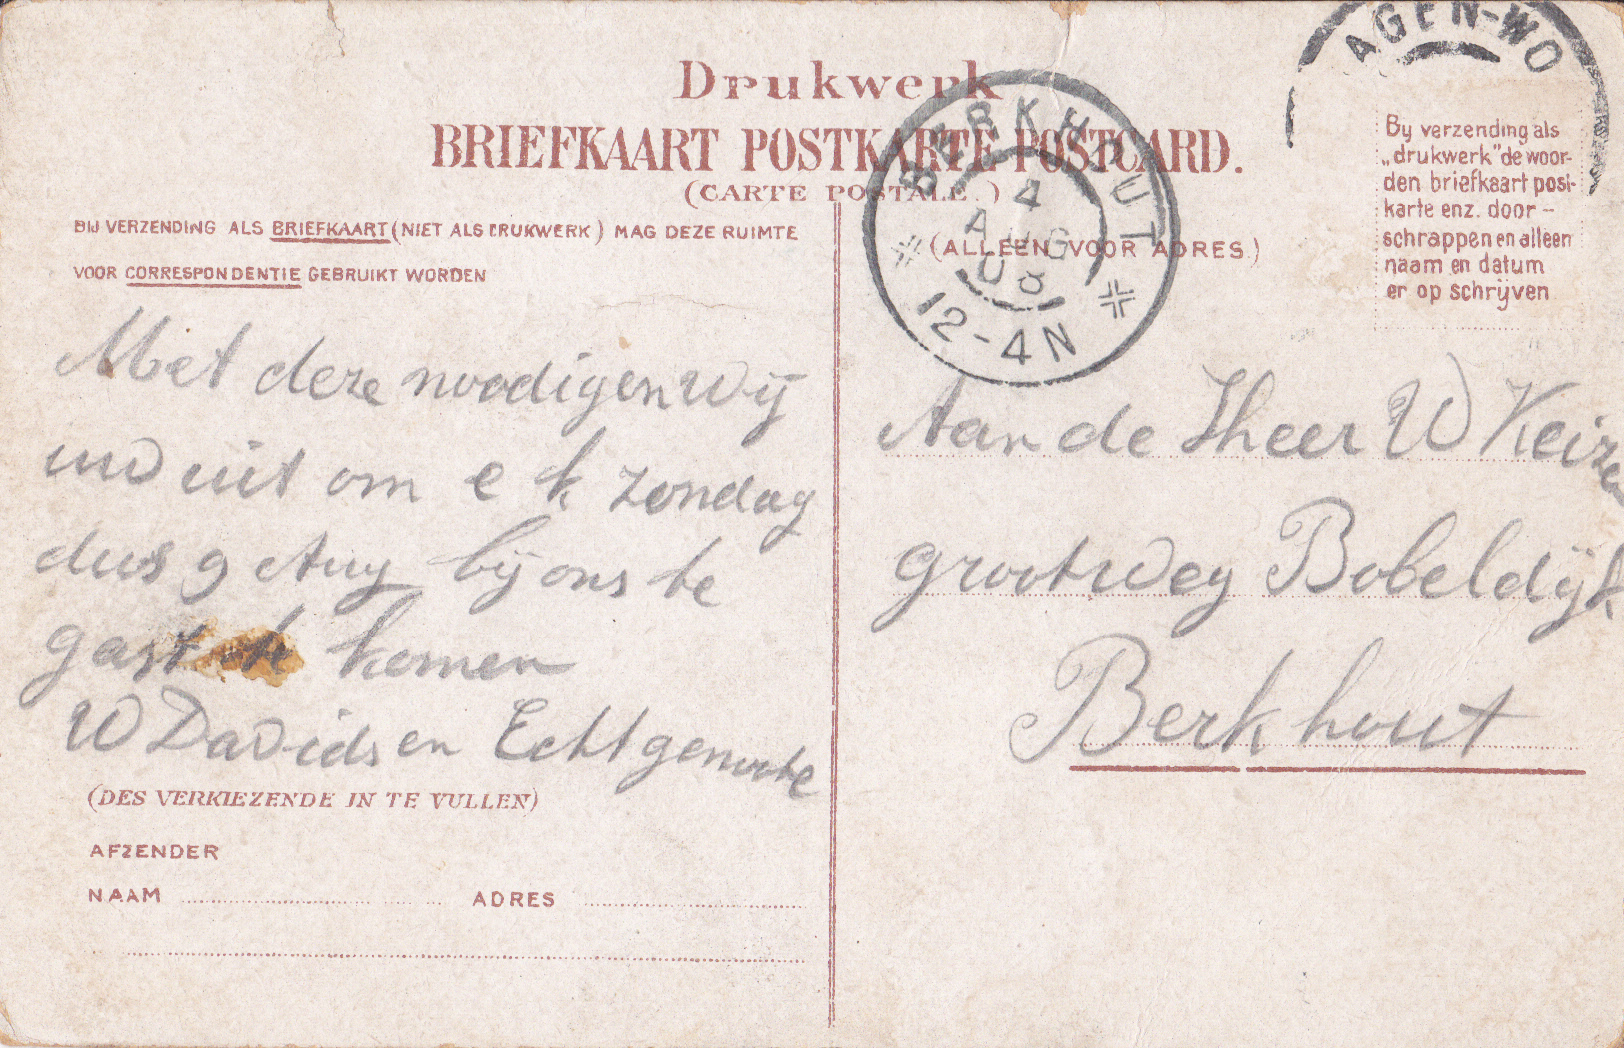 Drukwerk
BRIEFKAART POSTKARTE POSTCARD.
(CARTE POSTALE.)
BIJ VERZENDING ALS BRIEFKAART (NIET ALS DRUKWERK) MAG DEZE RUIMTE
VOOR CORRESPONDENTIE GEBRUIKT WORDEN
(ALLEEN VOOR ADRES)
BERKHOUT
4
AUG
08
12-4N
AGEN-WO
By verzending als
„drukwerk" de woor-
den briefkaart post-
karte enz. door-
schrappen en alleen
naam en datum
er op schrijven
Met deze noodigen wij
uw uit om e k zondag
dus 9 Aug bij ons te
gast te komen
W Davids en Echtgenoote
Aan de Heer W Keizer
grootweg Bobeldijk
Berkhout
(DES VERKIEZENDE IN TE VULLEN)
AFZENDER
NAAM ADRES